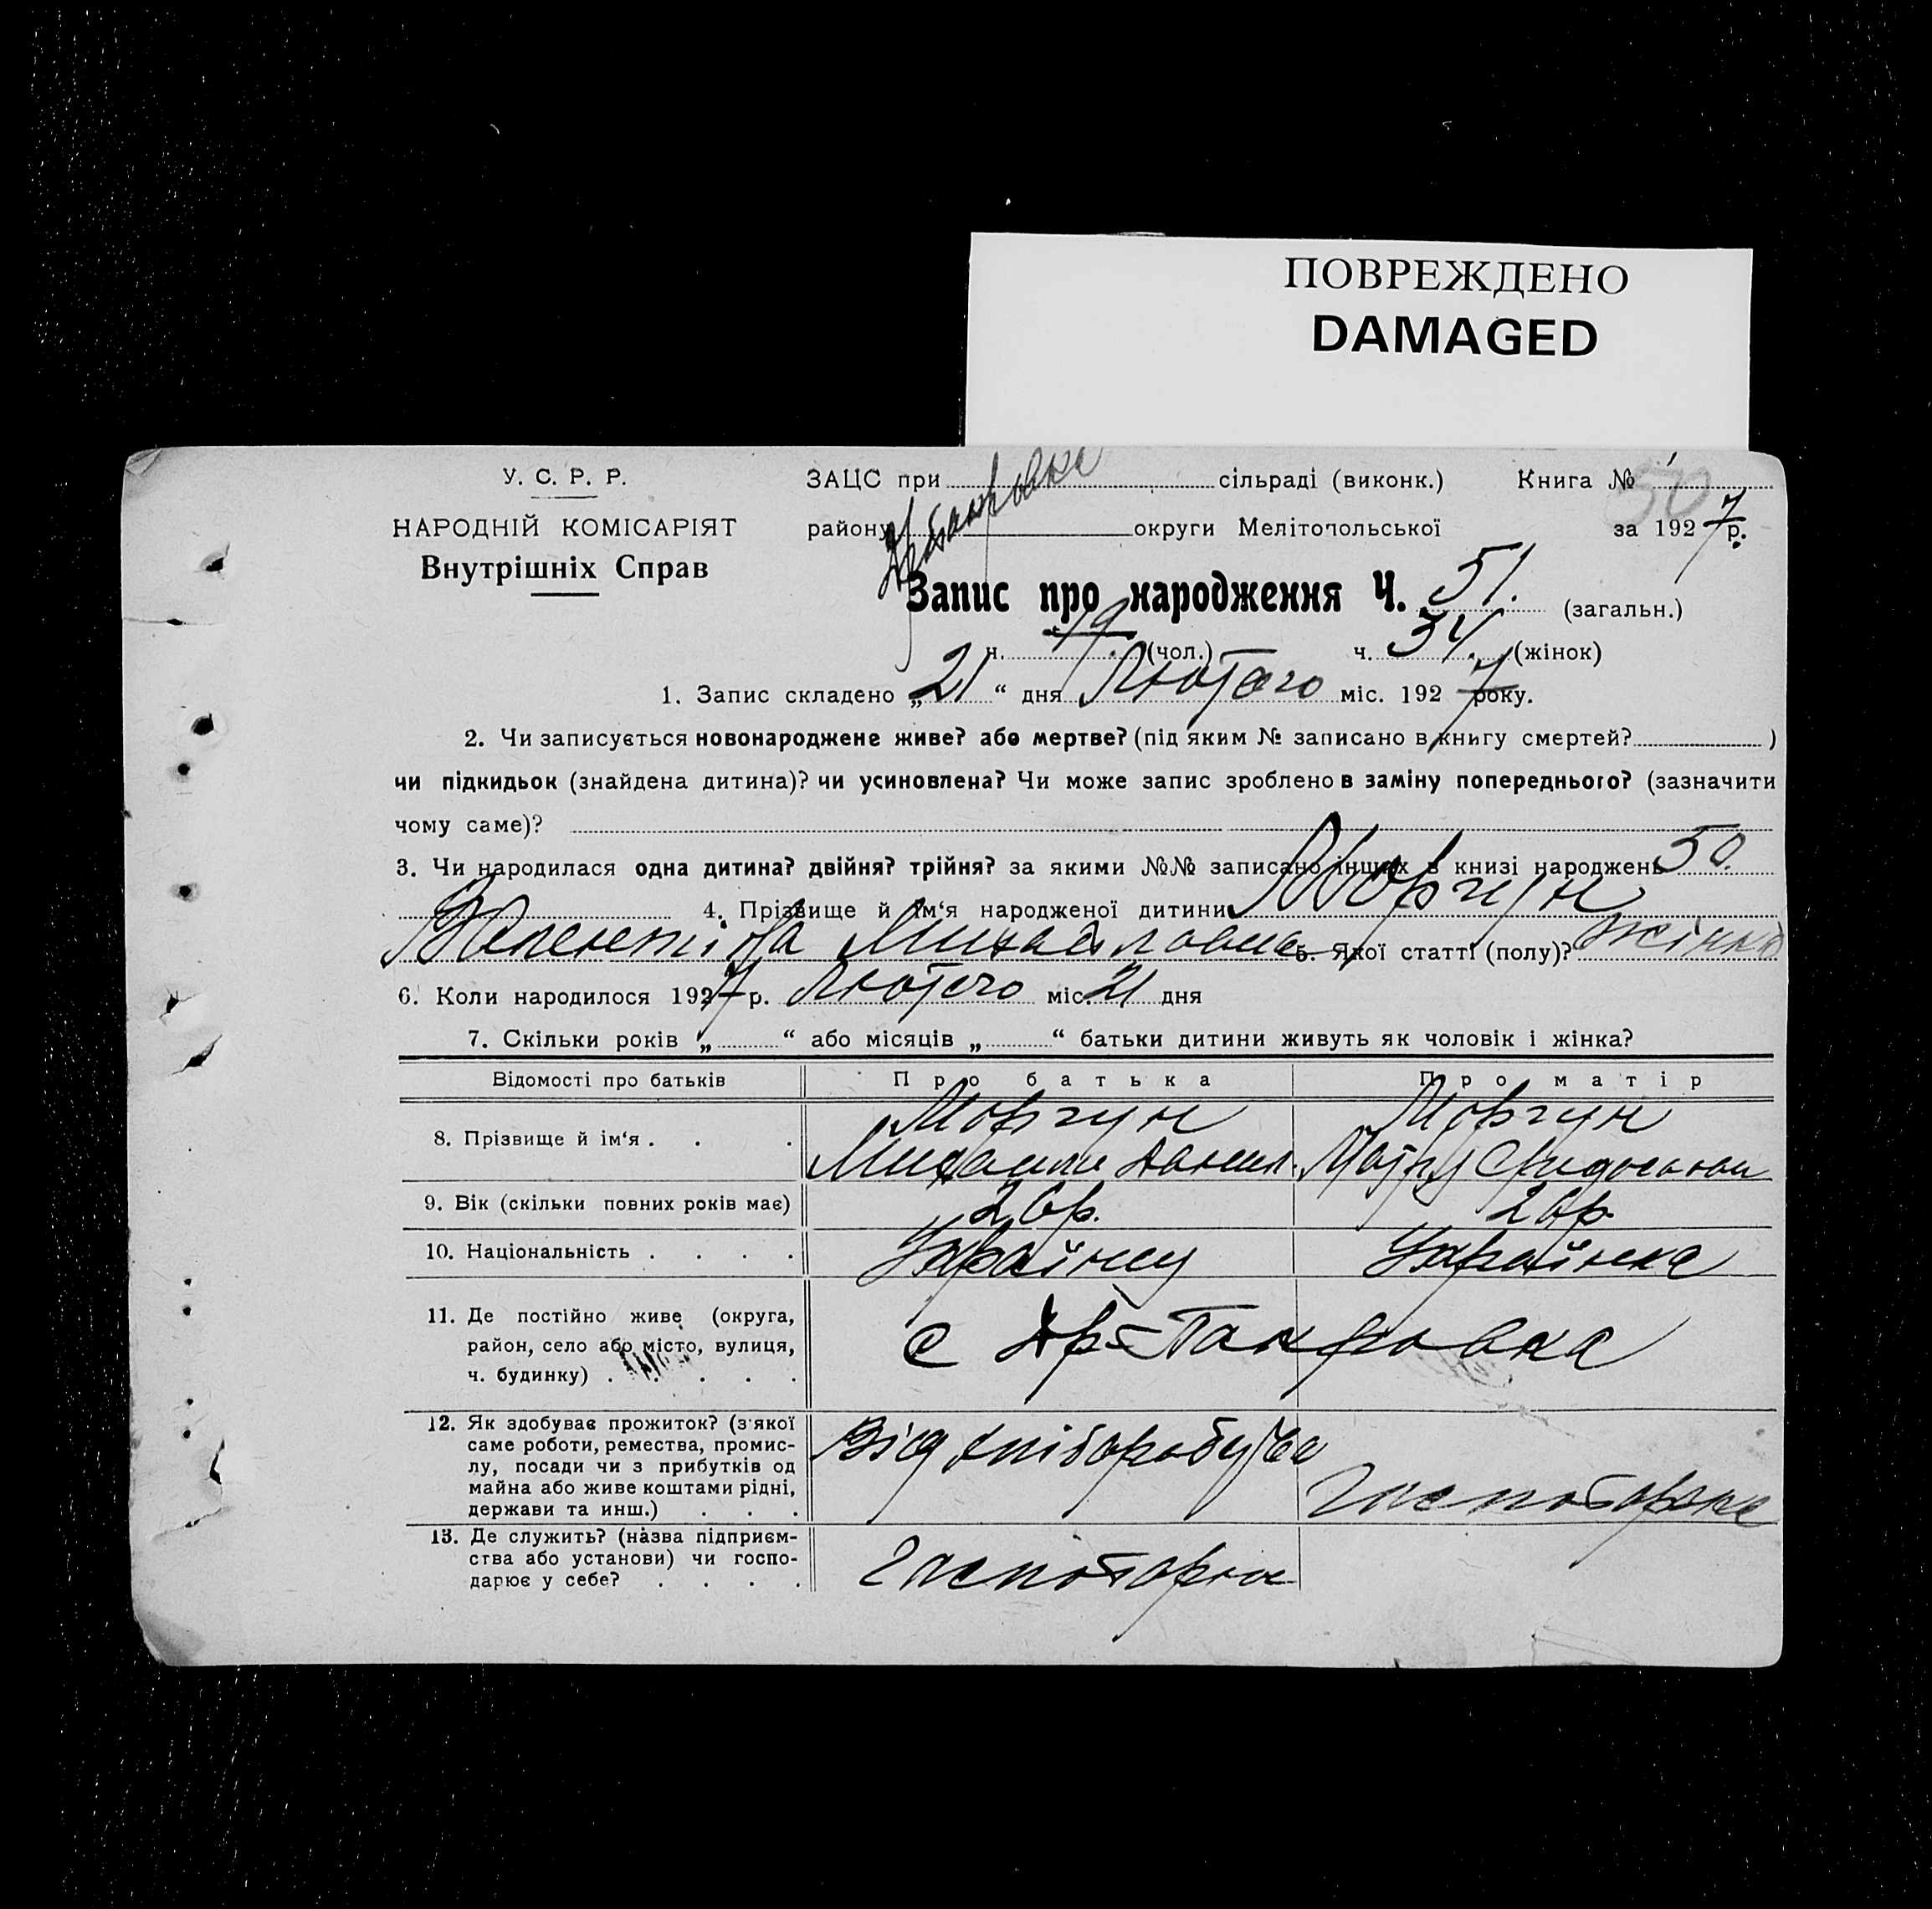 ПОВРЕЖДЕНО
DAMAGED
У. С. Р. Р.
НАРОДНІЙ КОМІСАРІЯТ
Внутрішніх Справ
ЗАЦС при сільраді (виконк.) Книга № 50
району округи Мелітопольської за 1927 р.
Запис про народження Ч. 51. (загальн.)
ч. 19 (чол.) ч. 34. (жінок)
1. Запис складено „21“ дня Лютого міс. 1927 року.
2. Чи записується новонароджене живе? або мертве? (під яким № записано в книгу смертей? )
чи підкидьок (знайдена дитина)? чи усиновлена? Чи може запис зроблено в заміну попереднього? (зазначити
чому саме)?
3. Чи народилася одна дитина? двійня? трійня? за якими №№ записано інших в книзі народжень 50.
4. Прізвище й ім‘я народженої дитини Моргун
Валентіна Михайловна 5. Якої статті (полу)? жінка
6. Коли народилося 1927 р. Лютого міс. 21 дня
7. Скільки років „ “ або місяців „ “ батьки дитини живуть як чоловік і жінка?
Відомості про батьків Про батька Про матір
8. Прізвище й ім‘я . . . Моргун Моргун
Михаили Данил.
9. Вік (скільки повних років має) 26р. 26р.
10. Національність . . . . Українец Українка
11. Де постійно живе (округа,
район, село або місто, вулиця,
ч. будинку) . . . . .
с Др-Покровка
12. Як здобуває прожиток? (з'якої
саме роботи, ремества, промис-
лу, посади чи з прибутків од
майна або живе коштами рідні,
держави та инш.) . . .
Від хліборобства
13. Де служить? (назва підприєм-
ства або установи) чи госпо-
дарює у себе? . . . .